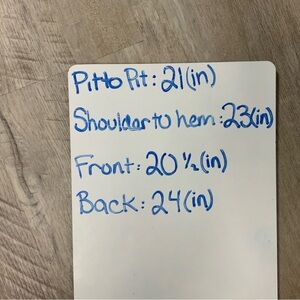 Pit to Pit: 21(in)
Shoulder to hem: 23(in)
Front: 20 ½ (in)
Back: 24(in)